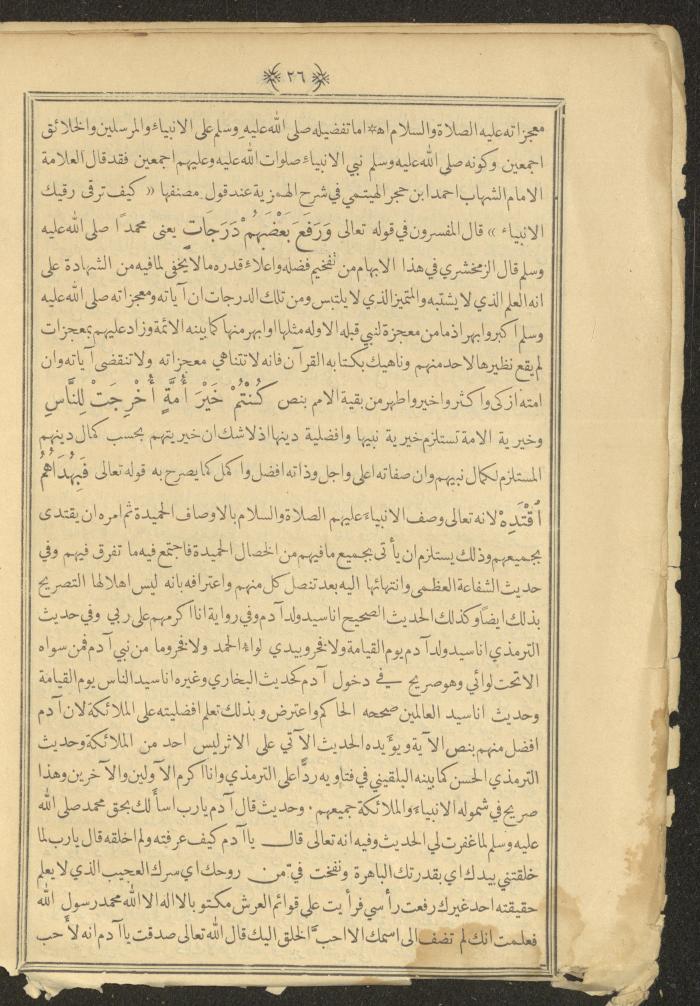 ٢٦
معجزاته عليه الصلاة والسلام اه * اما تفضيله صلى الله عليه وسلم على الانبياء والمرسلين والخلائق
اجمعين وكونه صلى الله عليه وسلم نبي الانبياء صلوات الله عليه وعليهم اجمعين فقد قال العلامة
الامام الشهاب احمد ابن حجر الهيتمي في شرح الهمزية عند قول مصنفها « كيف ترقى رقيك
الانبياء » قال المفسرون في قوله تعالى وَرَفَعَ بَعْضَهُمْ دَرَجَاتٍ يعنى محمدًا صلى الله عليه
وسلم قال الزمخشري في هذا الابهام من تفخيم فضله واعلاء قدره مالا يخفى لما فيه من الشهادة على
انه العلم الذي لا يشتبه والمتميز الذي لا يلتبس ومن تلك الدرجات ان آياته ومعجزاته صلى الله عليه
وسلم اكبر وابهر اذ ما من معجزة لنبي قبله الا وله مثلها او ابهر منها كما بينه الائمة وزاد عليهم بمعجزات
لم يقع نظيرها لاحد منهم وناهيك بكتابه القرآن فانه لا تتناهى معجزاته ولا تنقضى آياته وان
امته ازكى واكثر واخير واطهر من بقية الامم بنص كُنْتُمْ خَيْرَ أُمَّةٍ أُخْرِجَتْ لِلنَّاسِ
وخيرية الامة تستلزم خيرية نبيها وافضلية دينها اذ لا شك ان خيريتهم بحسب كمال دينهم
المستلزم لكمال نبيهم وان صفاته اعلى واجل وذاته افضل واكمل كما يصرح به قوله تعالى فَبِهُدَاهُمُ
اقْتَدِهْ لانه تعالى وصف الانبياء عليهم الصلاة والسلام بالاوصاف الحميدة ثم امره ان يقتدى
بجميعهم وذلك يستلزم ان يأتى بجميع ما فيهم من الخصال الحميدة فاجتمع فيه ما تفرق فيهم وفي
حديث الشفاعة العظمى وانتهائها اليه بعد تنصل كل منهم واعترافه بانه ليس اهلا لها التصريح
بذلك ايضاً وكذلك الحديث الصحيح انا سيد ولد آدم وفي رواية انا اكرمهم على ربي وفي حديث
الترمذي انا سيد ولد آدم يوم القيامة ولا فخر وبيدي لواء الحمد ولا فخر وما من نبي آدم فمن سواه
الا تحت لوائي وهو صريح في دخول آدم كحديث البخاري وغيره انا سيد الناس يوم القيامة
وحديث انا سيد العالمين صححه الحاكم واعترض وبذلك تعلم افضليته على الملائكة لان آدم
افضل منهم بنص الآية ويؤيده الحديث الآتي على الاثر ليس احد من الملائكة وحديث
الترمذي الحسن كما بينه البلقيني في فتاويه ردًّا على الترمذي وانا اكرم الآولين والآخرين وهذا
صريح في شموله الانبياء والملائكة جميعهم . وحديث قال آدم يارب اسألك بحق محمد صلى الله
عليه وسلم لما غفرت لي الحديث وفيه انه تعالى قال يا آدم كيف عرفته ولم اخلقه قال يارب لما
خلقتني بيدك اي بقدرتك الباهرة ونفخت فيّ من روحك اي سرك العجيب الذي لا يعلم
حقيقته احد غيرك رفعت رأسي فرأيت على قوائم العرش مكتوبا لا اله الا الله محمد رسول الله
فعلمت انك لم تضف الى اسمك الا احبَّ الخلق اليك قال الله تعالى صدقت يا آدم انه لأحب